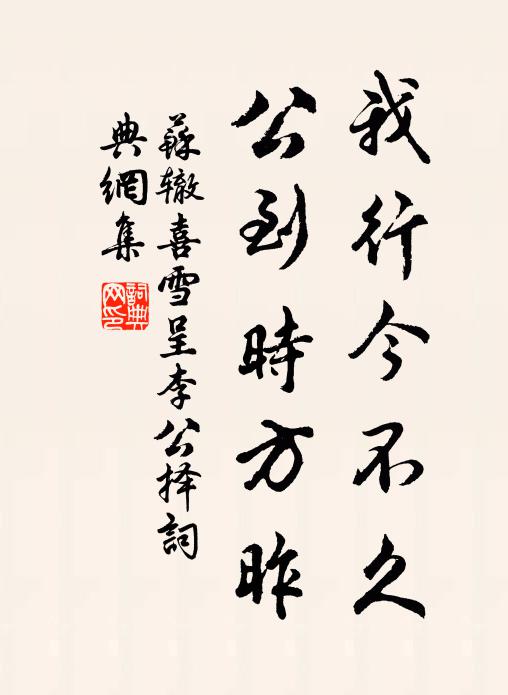 我行今不久
公到時方昨
蘇辙喜雪呈李公择詞
典網集
詞典网印